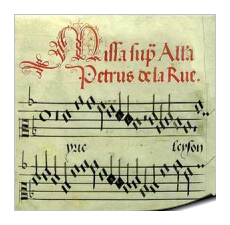 Missa sup̄ Alla
Petrus de la Rue.
yrie leyson